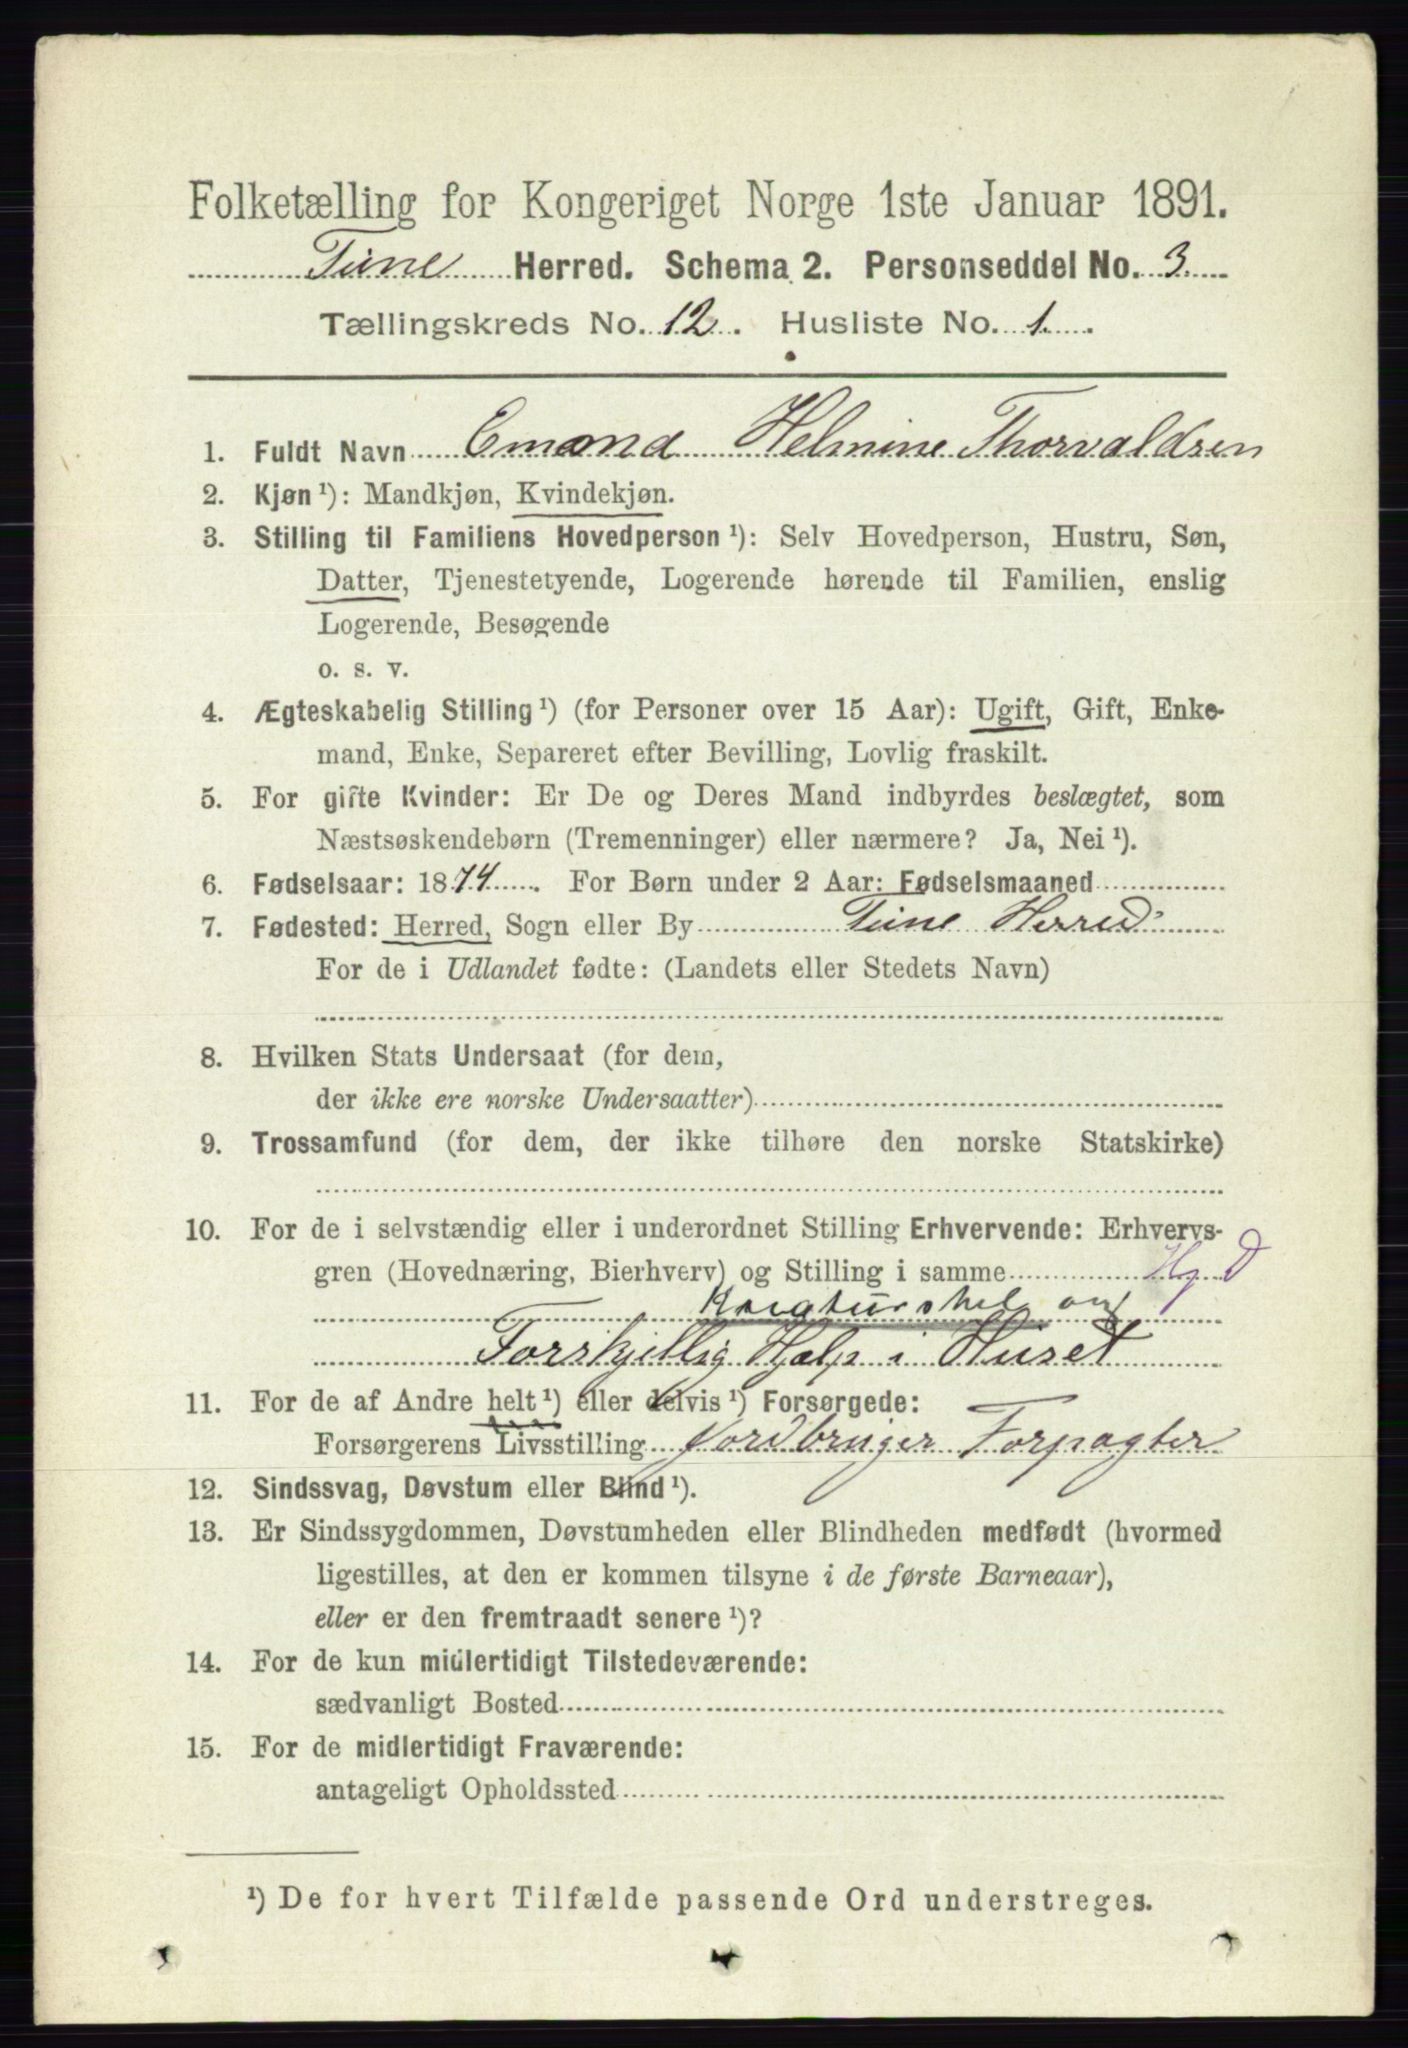 Folketælling for Kongeriget Norge 1ste Januar 1891.
Tune Herred. Schema 2. Personseddel No. 3
Tællingskreds No. 12. Husliste No. 1.
1. Fuldt Navn Emond Helmine Thorvaldsen
2. Kjøn ¹): Mandkjøn, Kvindekjøn.
3. Stilling til Familiens Hovedperson ¹): Selv Hovedperson, Hustru, Søn,
Datter, Tjenestetyende, Logerende hørende til Familien, enslig
Logerende, Besøgende
o. s. v.
4. Ægteskabelig Stilling ¹) (for Personer over 15 Aar): Ugift, Gift, Enke-
mand, Enke, Separeret efter Bevilling, Lovlig fraskilt.
5. For gifte Kvinder: Er De og Deres Mand indbyrdes beslægtet, som
Næstsøskendebørn (Tremenninger) eller nærmere? Ja, Nei ¹).
6. Fødselsaar: 1874. For Børn under 2 Aar: Fødselsmaaned
7. Fødested: Herred, Sogn eller By Tune Herred
For de i Udlandet fødte: (Landets eller Stedets Navn)
8. Hvilken Stats Undersaat (for dem,
der ikke ere norske Undersaatter)
9. Trossamfund (for dem, der ikke tilhøre den norske Statskirke)
10. For de i selvstændig eller i underordnet Stilling Erhvervende: Erhvervs-
gren (Hovednæring, Bierhverv) og Stilling i samme Hj D
Kreaturstel og
Forskjellig Hjælp i Huset
11. For de af Andre helt ¹) eller delvis ¹) Forsørgede:
Forsørgerens Livsstilling Jordbruger Forpagter
12. Sindssvag, Døvstum eller Blind ¹).
13. Er Sindssygdommen, Døvstumheden eller Blindheden medfødt (hvormed
ligestilles, at den er kommen tilsyne i de første Barneaar),
eller er den fremtraadt senere ¹)?
14. For de kun midlertidigt Tilstedeværende:
sædvanligt Bosted
15. For de midlertidigt Fraværende:
antageligt Opholdssted
¹) De for hvert Tilfælde passende Ord understreges.